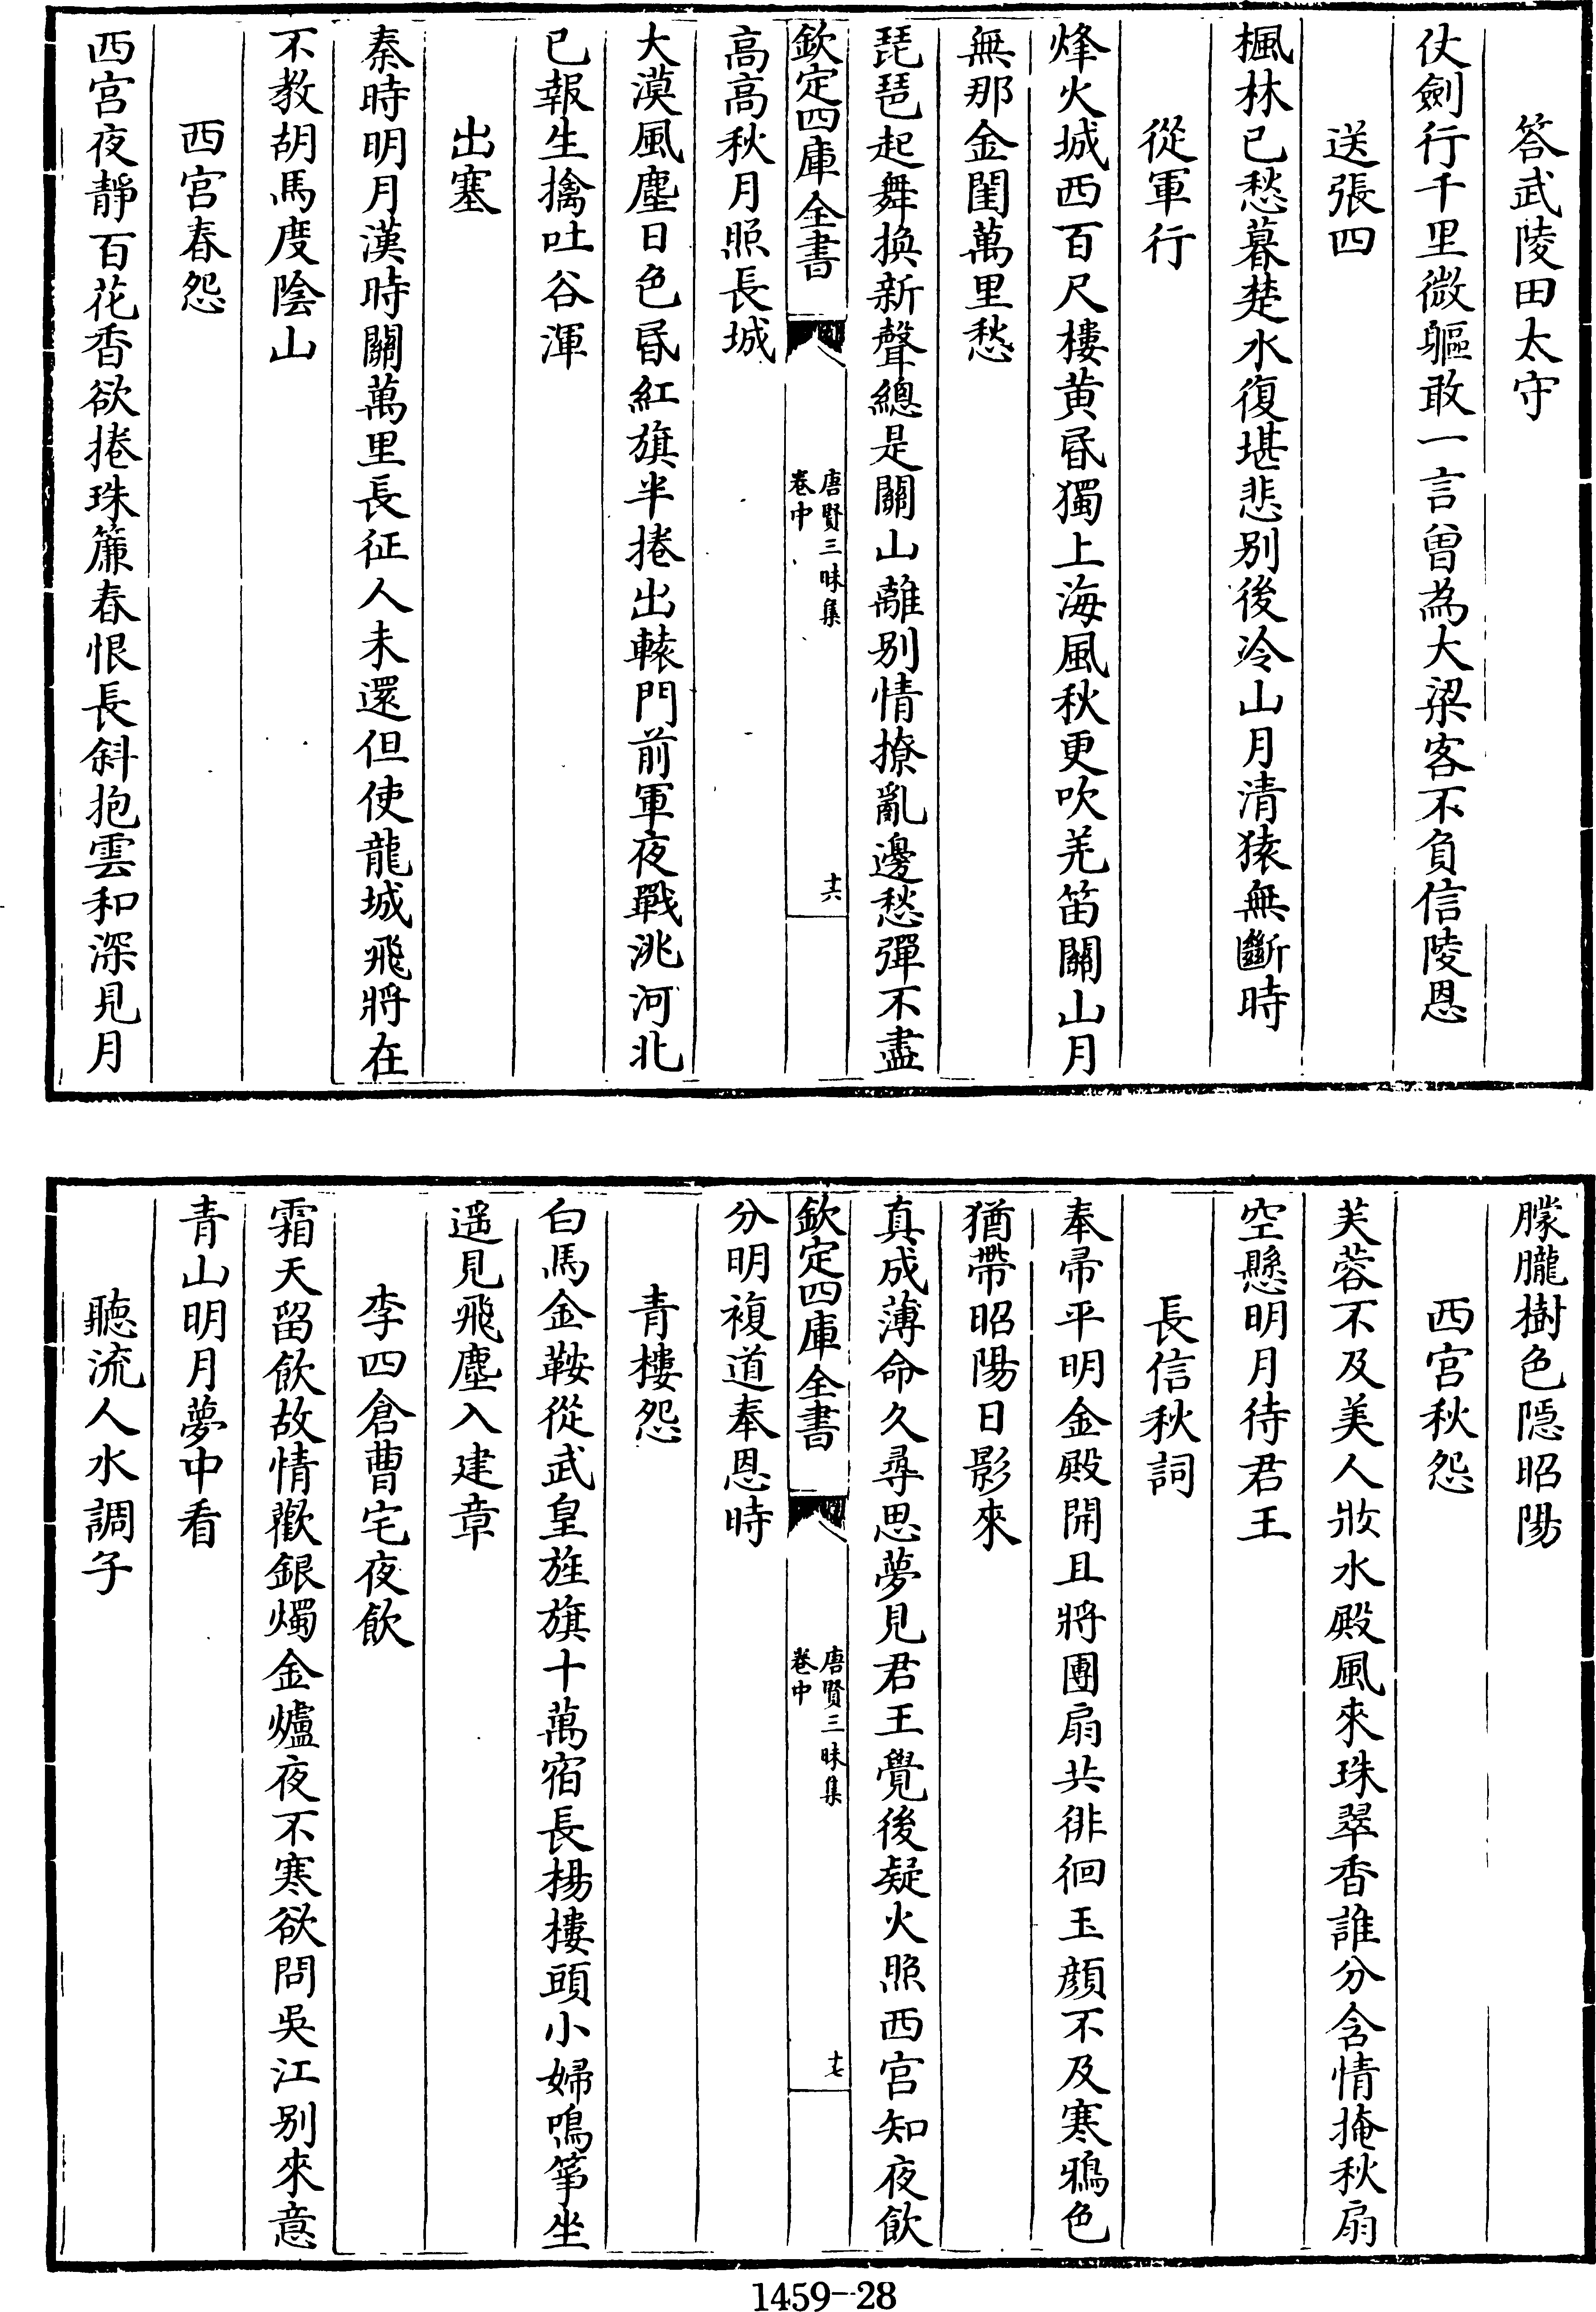 答武陵田太守
仗劍行千里微軀敢一言曾為大梁客不負信陵恩
送張四
楓林已愁暮楚水復堪悲别後冷山月清猿無斷時
從軍行
烽火城西百尺樓黄昏獨上海風秋更吹羌笛關山月
無那金閨萬里愁
琵琶起舞換新聲總是關山離别情撩亂邊愁彈不盡
欽定四庫全書
唐賢三昧集
卷中
十六
高高秋月照長城
大漠風塵日色昏紅旗半捲出轅門前軍夜戰洮河北
已報生擒吐谷渾
出塞
秦時明月漢時關萬里長征人未還但使龍城飛將在
不教胡馬度陰山
西宮春怨
西宮夜靜百花香欲捲珠簾春恨長斜抱雲和深見月
朦朧樹色隱昭陽
西宮秋怨
芙蓉不及美人妝水殿風來珠翠香誰分含情掩秋扇
空懸明月待君王
長信秋詞
奉帚平明金殿開且將團扇共徘徊玉顔不及寒鴉色
猶帶昭陽日影來
真成薄命久尋思夢見君王覺後疑火照西宮知夜飲
欽定四庫全書
唐賢三昧集
卷中
十七
分明複道奉恩時
青樓怨
白馬金鞍從武皇旌旗十萬宿長楊樓頭小婦鳴筝坐
遥見飛塵入建章
李四倉曹宅夜飲
霜天留飲故情歡銀燭金爐夜不寒欲問吳江别來意
青山明月夢中看
聽流人水調子
1459-28